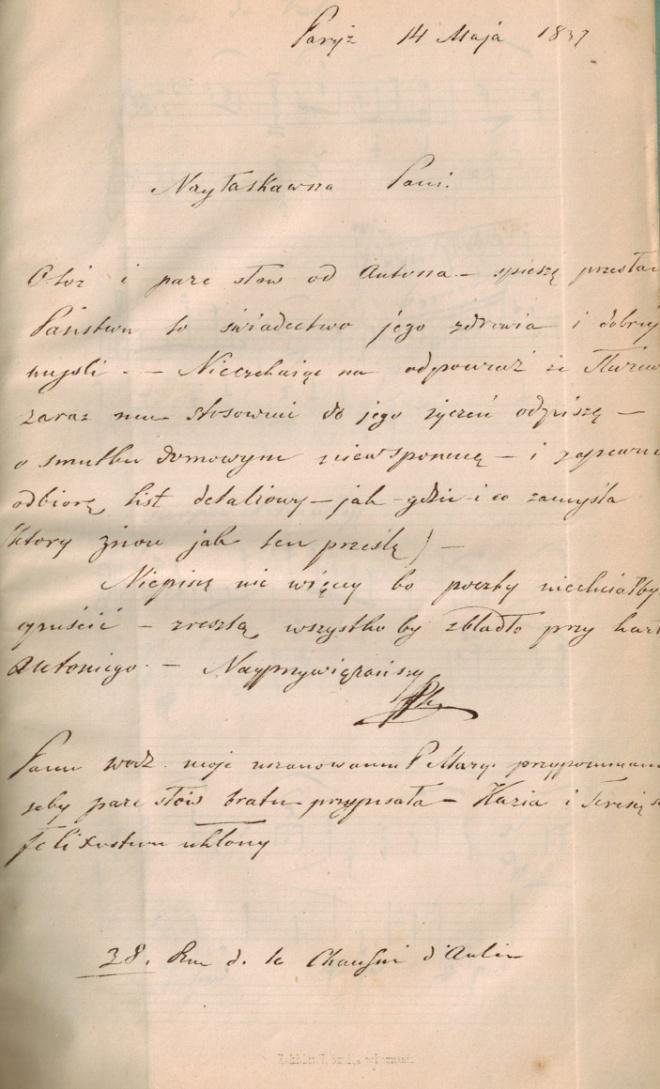 Paryż 14 Maja 1837
Nayłaskawsza Pani.
Otoż i parę słów od Antosia – spieszę przesłać
Państwu to świadectwo jego zdrowia i dobrey
mysli. – Nieczekaiąc na odpowiedź
zaraz mu stosownie do jego życzeń odpiszę –
o smutku domowym niewspomnę – i zapewne
odbiorę list detaliowy – jak – gdzie – i co zamyśla
ktory znow jak ten prześlę) –
Niepiszę nic więcey bo poczty niechciałby
opuścić – zresztą wszystko by zbladło przy
Antoniego. – Nayprzywiązańszy
Panu moje uszanowanie P Maryi przypominam
żeby parę słów bratu przypisała – Kazia i
Felixostwu ukłony
38. Rue d. la Chaussée d'Antin